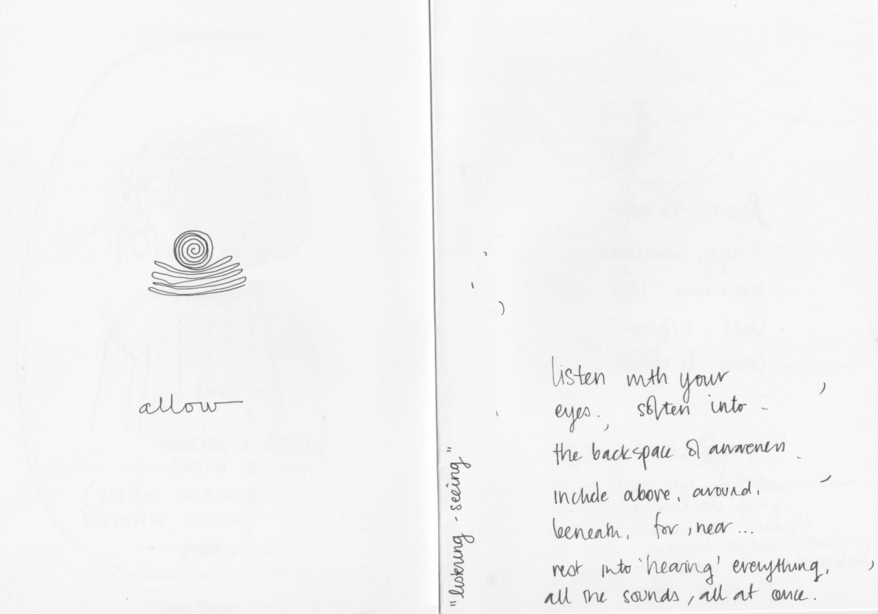 allow
"listening - seeing"
listen with your
eyes., soften into -
the backspace of awareness
include above, around,
beneath, far, near...
rest into 'hearing' everything,
all the sounds, all at once.